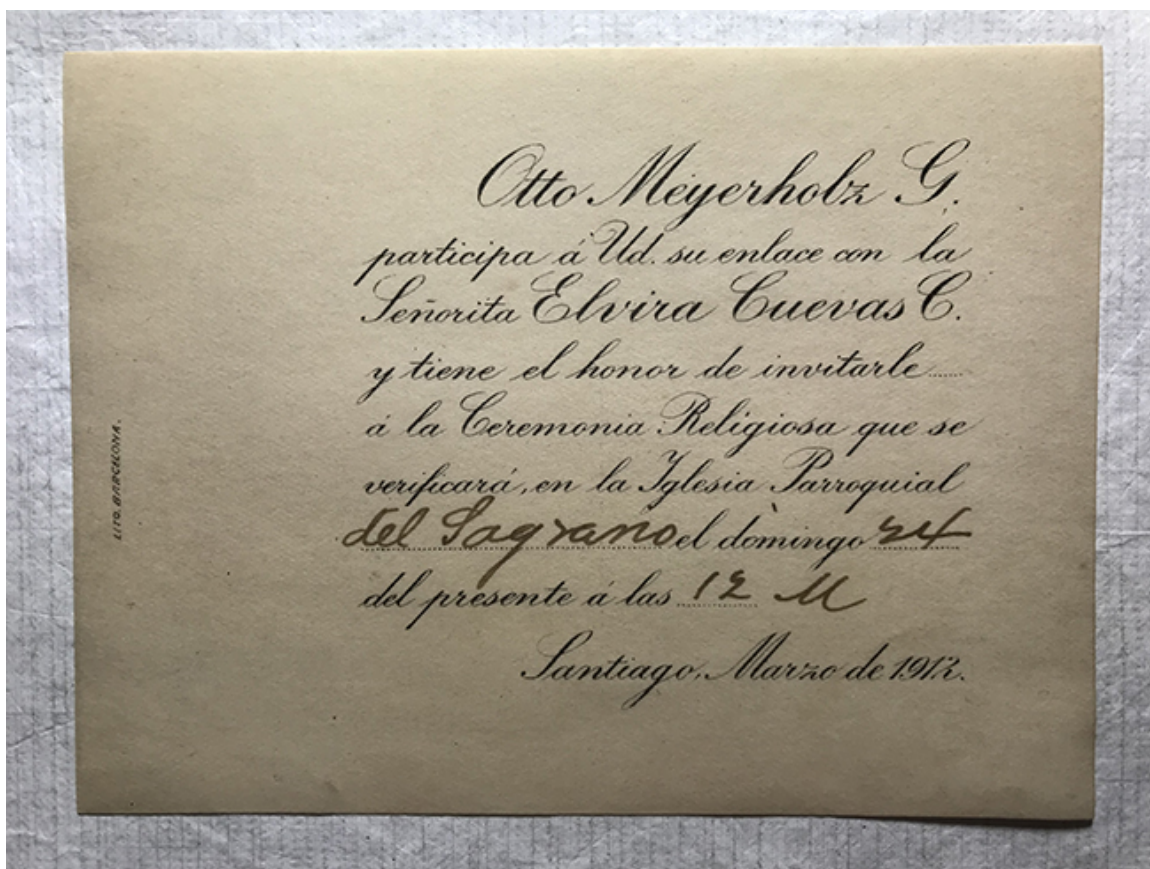 Otto Meyerholz G.
participa á Ud. su enlace con la
Señorita Elvira Cuevas C.
y tiene el honor de invitarle......
á la Ceremonia Religiosa que se
verificará, en la Iglesia Parroquial
del Sagrario el domingo 24
del presente á las 12 M
Santiago, Marzo de 1912.
LITO. BARCELONA.